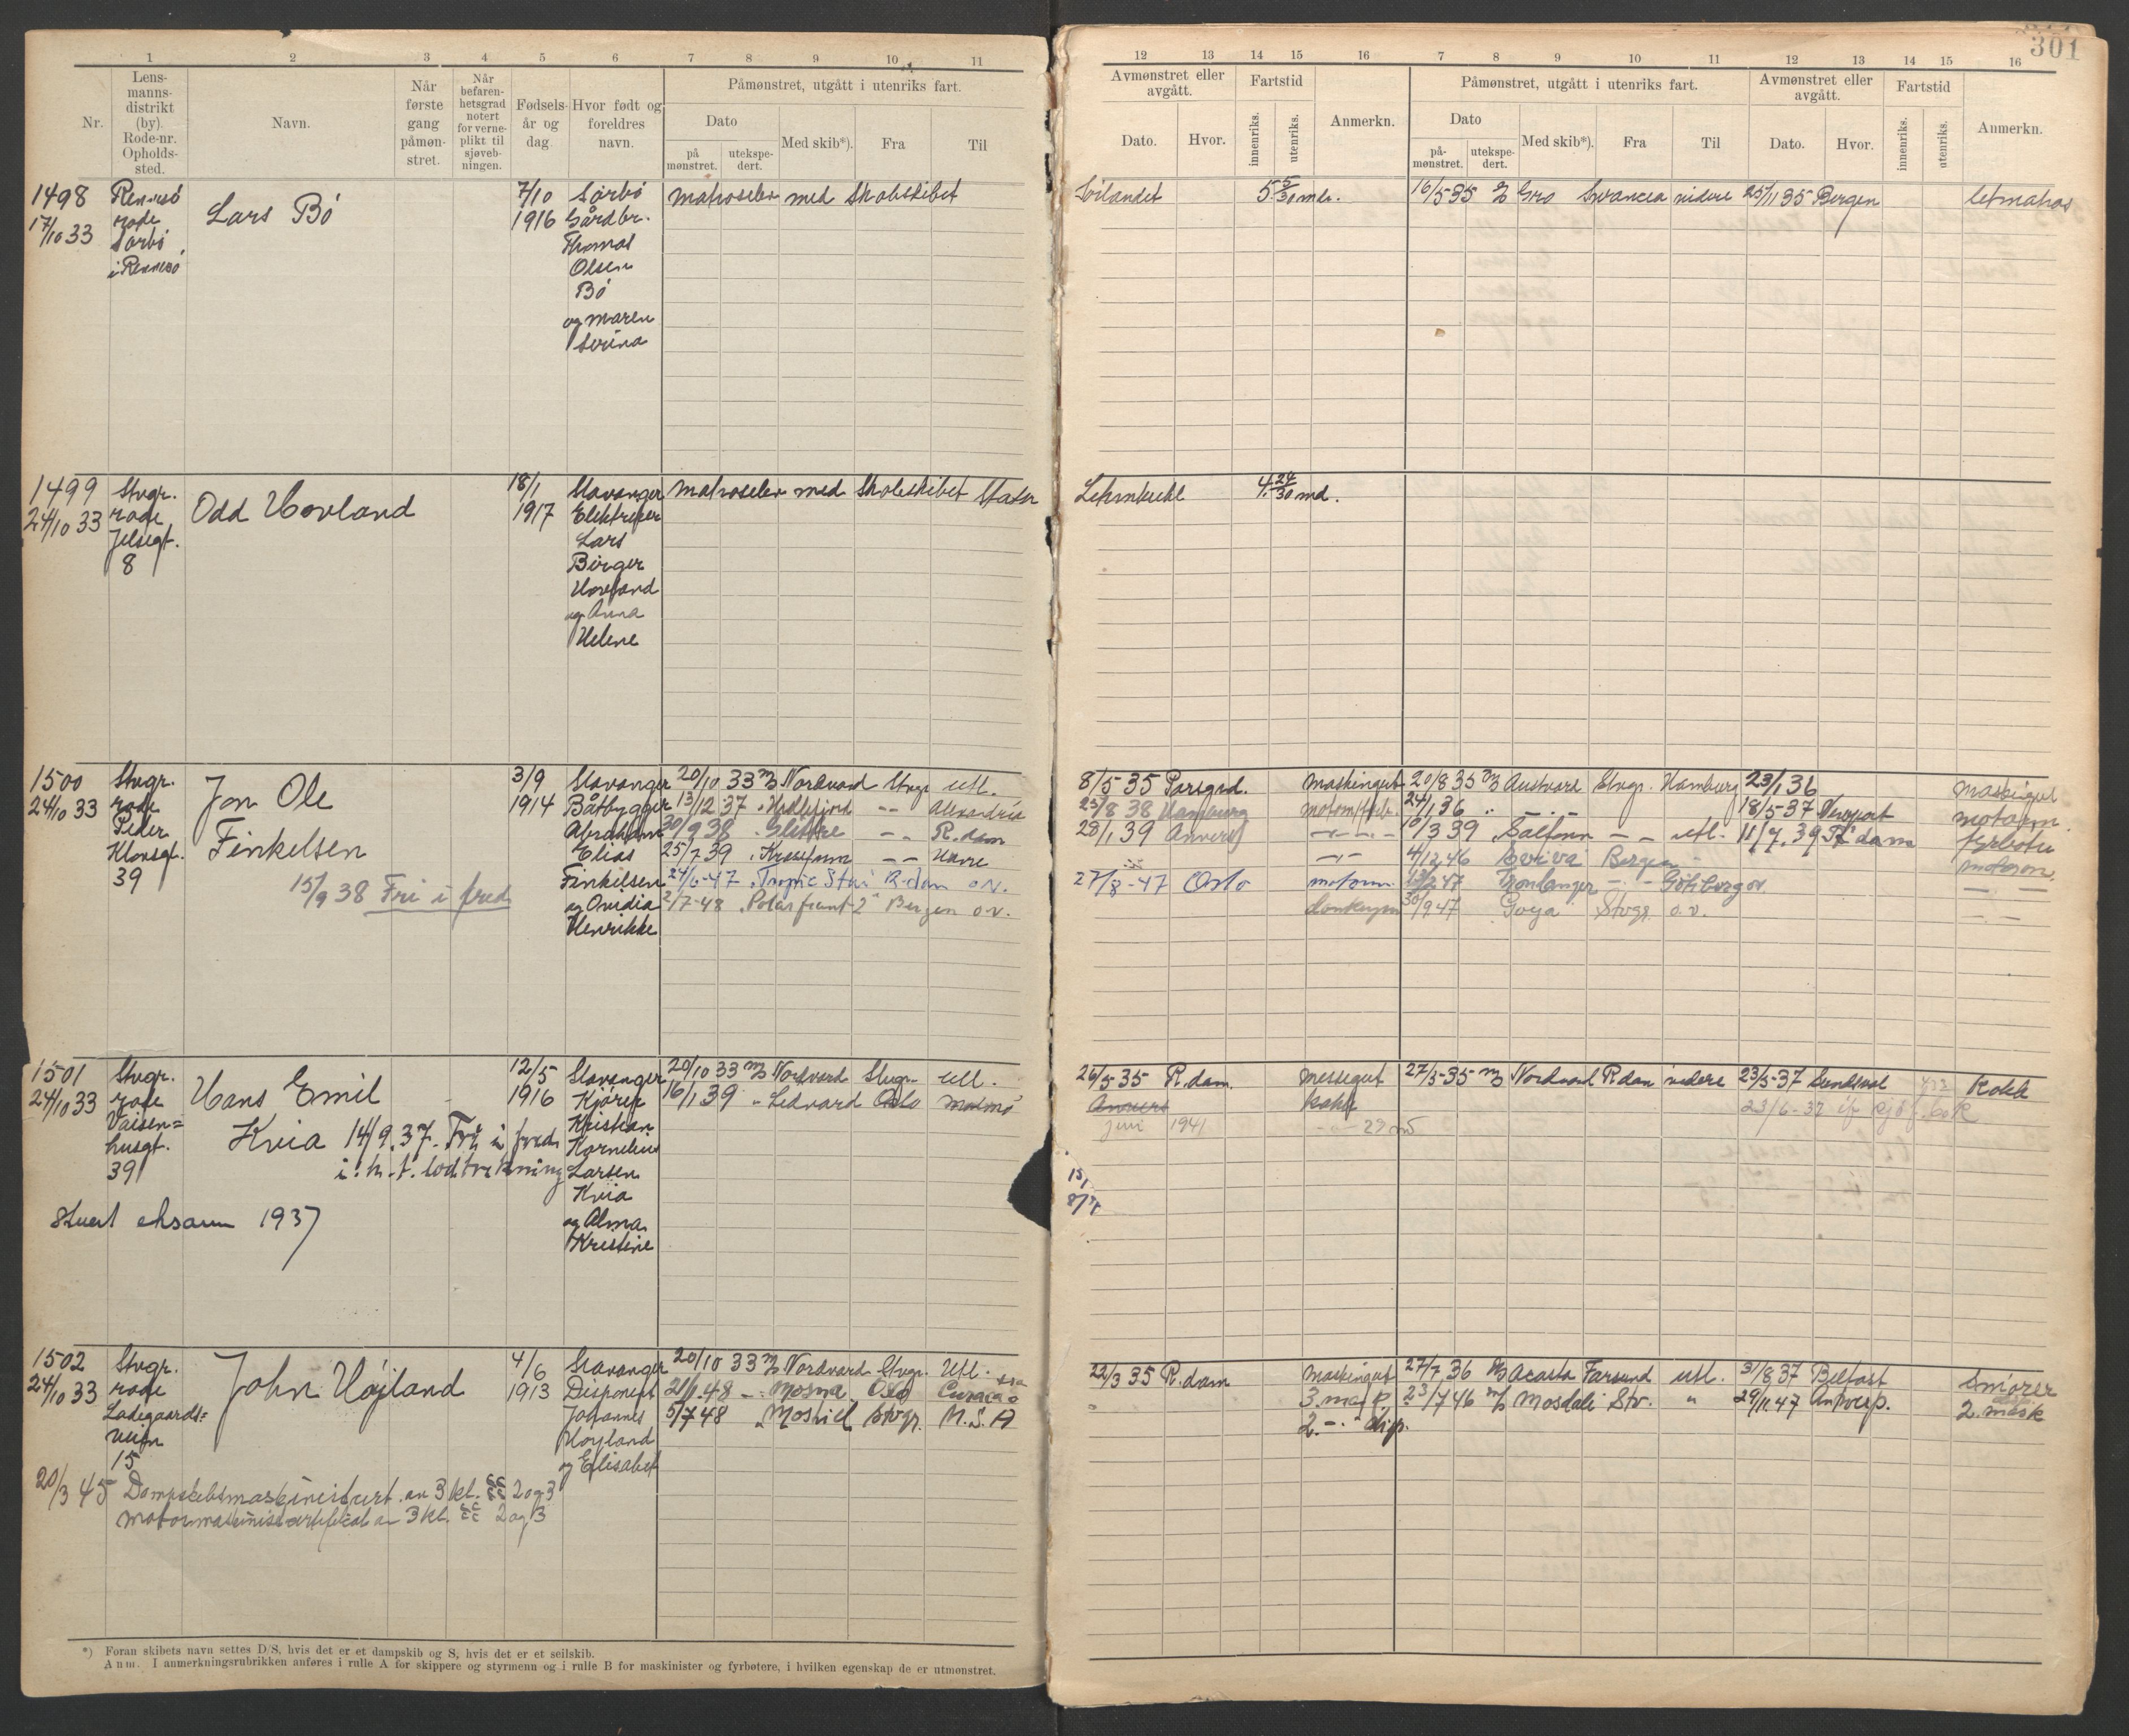 301
1 2 3 4 5 6 7 8 9 10 11
Nr.
Lens-
manns-
distrikt
(by).
Rode-nr.
Opholds-
sted.
Navn.
Når
første
gang
påmøn-
stret.
Når
befaren-
hetsgrad
notert
for verne-
plikt til
sjøveb-
ningen.
Fødsels-
år og
dag.
Hvor født og
foreldres
navn.
Påmønstret, utgått i utenriks fart.
Dato
på
mønstret.
utekspe-
dert.
Med skib*).
Fra
Til
12 13 14 15 16 7 8 9 10 11 12 13 14 15 16
Avmønstret eller
avgått.
Dato.
Hvor.
Fartstid
innenriks.
utenriks.
Anmerkn.
Påmønstret, utgått i utenriks fart.
Dato
på-
mønstret.
utekspe-
dert.
Med skib*).
Fra
Til
Avmønstret eller
avgått.
Dato.
Hvor.
Fartstid
innenriks.
utenriks.
Anmerkn.
1498
17/10 33
Rennesö
rode
Sörbö
i Rennesö
Lars Bö
7/10
1916
Sörbö
Gårdbr.
Thomas
Olsen
Bö
og Maren
Serina
Matroselev med Skoleskibet
Sörlandet 5 5/30 mdr.
16/5 35 Gro Swansea videre 25/11 35 Bergen letmatros
1499
24/10 33
Stvgr.
rode
Jelsegt.
8
Odd Hovland
18/1
1917
Stavanger
Elektriker
Lars
Birger
Hovland
og Anna
Helene
Matroselev med Skoleskibet Statsr
Lehmkuhl 4 24/30 md.
1500
24/10 33
Stvgr.
rode
Peder
Klowsgt.
39
Jon Ole
Finkelsen
15/9 38 Fri i fred
3/9
1914
Stavanger
Båtbygger
Abraham
Elias
Finkelsen
og Ovidia
Henrikke
20/10 33 M/S Nordvard Stvgr. Utl.
13/12 37 " Hallefjord - - Alexandria
30/9 38 - Glittre - - R.dam
25/7 39 " Krossfonn - - Havre
24/6-47 " Tropic Star R-dam o.v.
2/7-48 "Polarfront 2" Bergen o.v.
8/5 35 Porsgrd. Maskingut
25/8 38 Hamburg motorm
28/1 39 Anvers
27/8-47 Oslo motorm.
donkeym
20/8 35 M/S Austvard Stvgr. Hamburg 23/1 36 maskingut
24/1 36 18/5-37 Newport motorm
10/3 39 Salfonn - - utl. 11/7.39 R'dam fyrböter
4/12 46 Sviva Bergen - motorm.
13/2 47 Fronlanger - Göteborg ov
30/9 47 Goya Stvgr. o.v.
1501
24/10 33
Stvgr.
rode
Vaisen=
husgt.
39
Hans Emil
Kvia 14/9.37. Fri i fred
i. h. t. lodtrekning
Stuert eksamen 1937
12/5
1916
Stavanger
Kjörer
Kristian
Kornelius
Larsen
Kvia
og Alma
Kristine
20/10 33 M/S Nordvard Stvgr. Utl.
16/1 39 " Ledvard Oslo Malmö
26/5 35 R.dam Messegut
Anvers kokk
juni 1941
27/5-35 M/S Nordvard R.dam videre 23/5-37 Sundsval Kokk
23/6-37 if. sjöf.bok
1502
24/10 33
Stvgr.
rode
Ladegaards=
veien
15
John Höjland
4/6
1913
Stavanger
Disponent
Johannes
Höyland
og Elisabet
20/10 33 M/S Nordvard Stvgr. Utl.
21/1.48 - Mosna Oslo Curacao
5/7 48 " Moshill Stvgr. U.S.A
20/3 45 Dampskibsmaskinistsert. av 3 kl. 2 og 3
Motormaskinistsertifikat av 3 kl. 2 og 3
22/3 35 R.dam Maskingut
3. mask
2. - disp.
27/7 36 M/S Acasta Farsund utl. 31/8 37 Belfast Smörer
23/7 46 M/S Mosdali Stv. " 29/11.47 Antwerp. 2. mask
*) Foran skibets navn settes D/S, hvis det er et dampskib og S, hvis det er et seilskib.
Anm. I anmerkningsrubrikken anføres i rulle A for skippere og styrmenn og i rulle B for maskinister og fyrbøtere, i hvilken egenskap de er utmønstret.